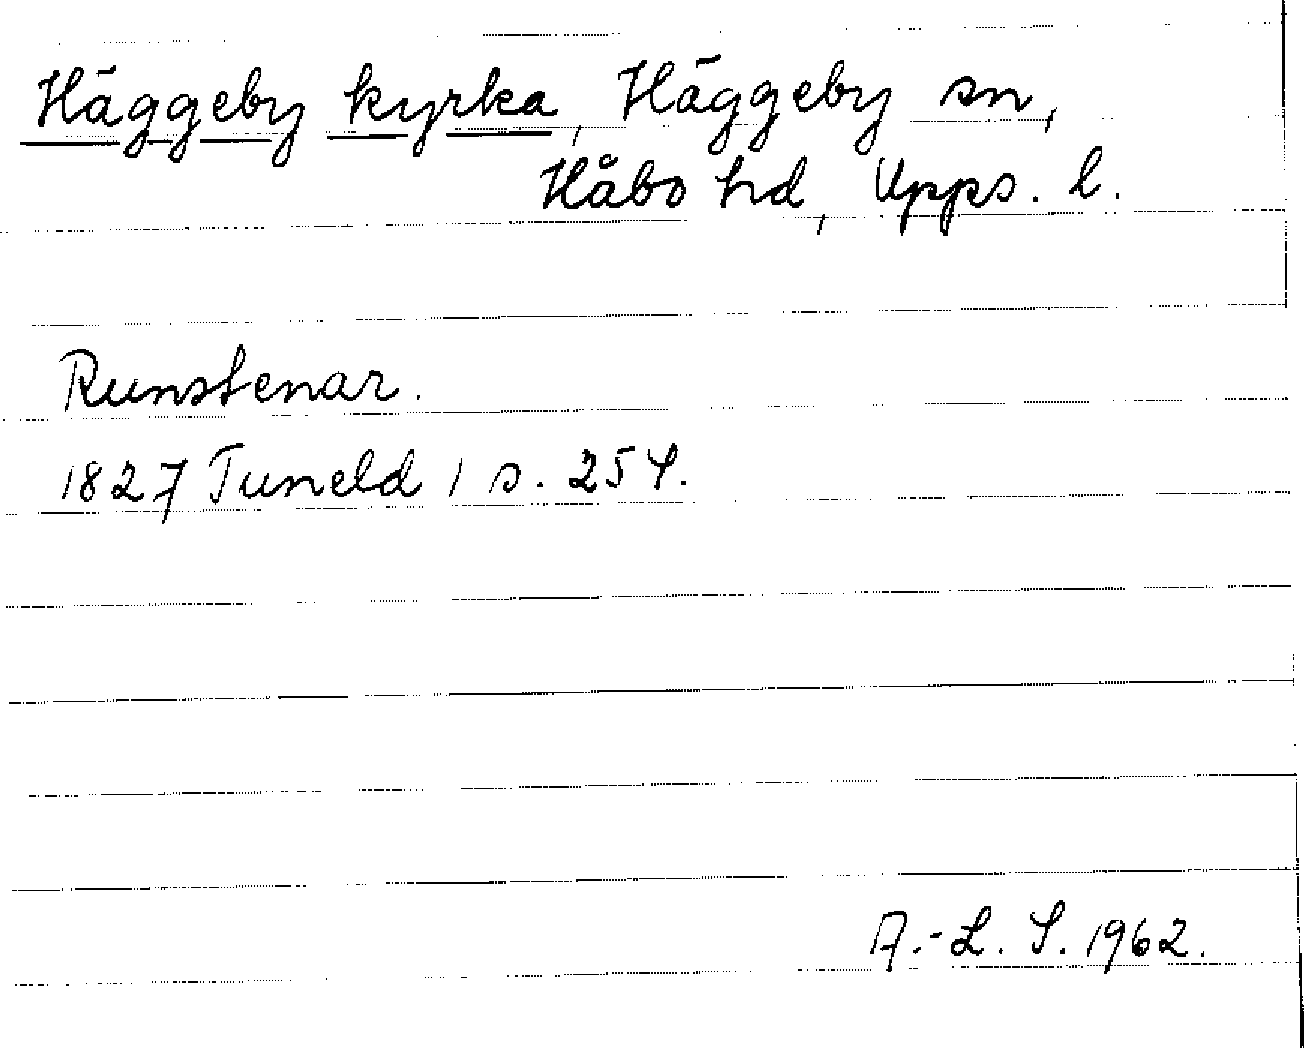 Häggeby kyrka, Häggeby sn,
Håbo hd, Upps. l.
Runstenar.
1827 Tuneld 1 s. 254.
A.-L. S. 1962.